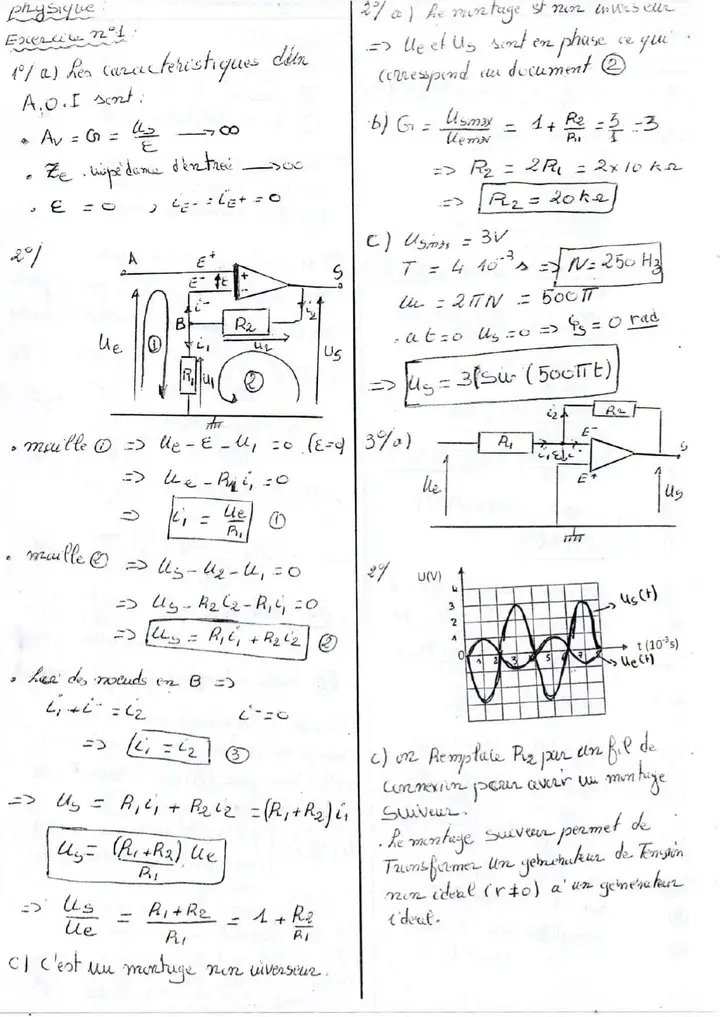 physique
Exercice n°1:
1°/ a) Les caractéristiques d'un
A.O.I sont:
• Av = G = us/ε → ∞
• Ze. impédance d'entrée → ∞
• ε = 0 , iE- = iE+ = 0
2°/
A
E+
E-
ε
+
-
S
i-
i2
B
R2
u2
i1
Ue
①
R1
u1
②
Us
• maille ① => Ue - ε - U1 = 0 (ε=0)
=> Ue - R1 i1 = 0
=> i1 = Ue/R1 ①
• maille ② => Us - U2 - U1 = 0
=> Us - R2 i2 - R1 i1 = 0
=> Us = R1 i1 + R2 i2 ②
• Loi des nœuds en B =>
i1 + i- = i2 i- = 0
=> i1 = i2 ③
=> Us = R1 i1 + R2 i2 = (R1+R2) i1
Us = (R1+R2) Ue / R1
=> Us/Ue = R1+R2/R1 = 1 + R2/R1
C) C'est un montage non inverseur.
2°/ a) Le montage st non inverseur
=> Ue et Us sont en phase ce qui
correspond au document ②
b) G = Usmax/Uemax = 1 + R2/R1 = 3/1 = 3
=> R2 = 2R1 = 2 x 10 kΩ
=> R2 = 20 kΩ
C) Usmax = 3V
T = 4 10-3 s => N = 250 Hz
ω = 2πN = 500π
. a t=0 us=0 => φs = 0 rad
=> us = 3 Sin (500πt)
3°/a)
i2
R2
R1
E-
i1
ε
i-
S
E+
Ue
Us
2°/
U(V)
4
3
2
1
0
1 2 3 4 5 6 7 8
Us(t)
t (10-3s)
Ue(t)
c) on Remplace R2 par un fil de
connexion pour avoir un montage
suiveur.
. Le montage suiveur permet de
Transformer un générateur de Tension
non idéal (r≠0) a' un générateur
idéal.